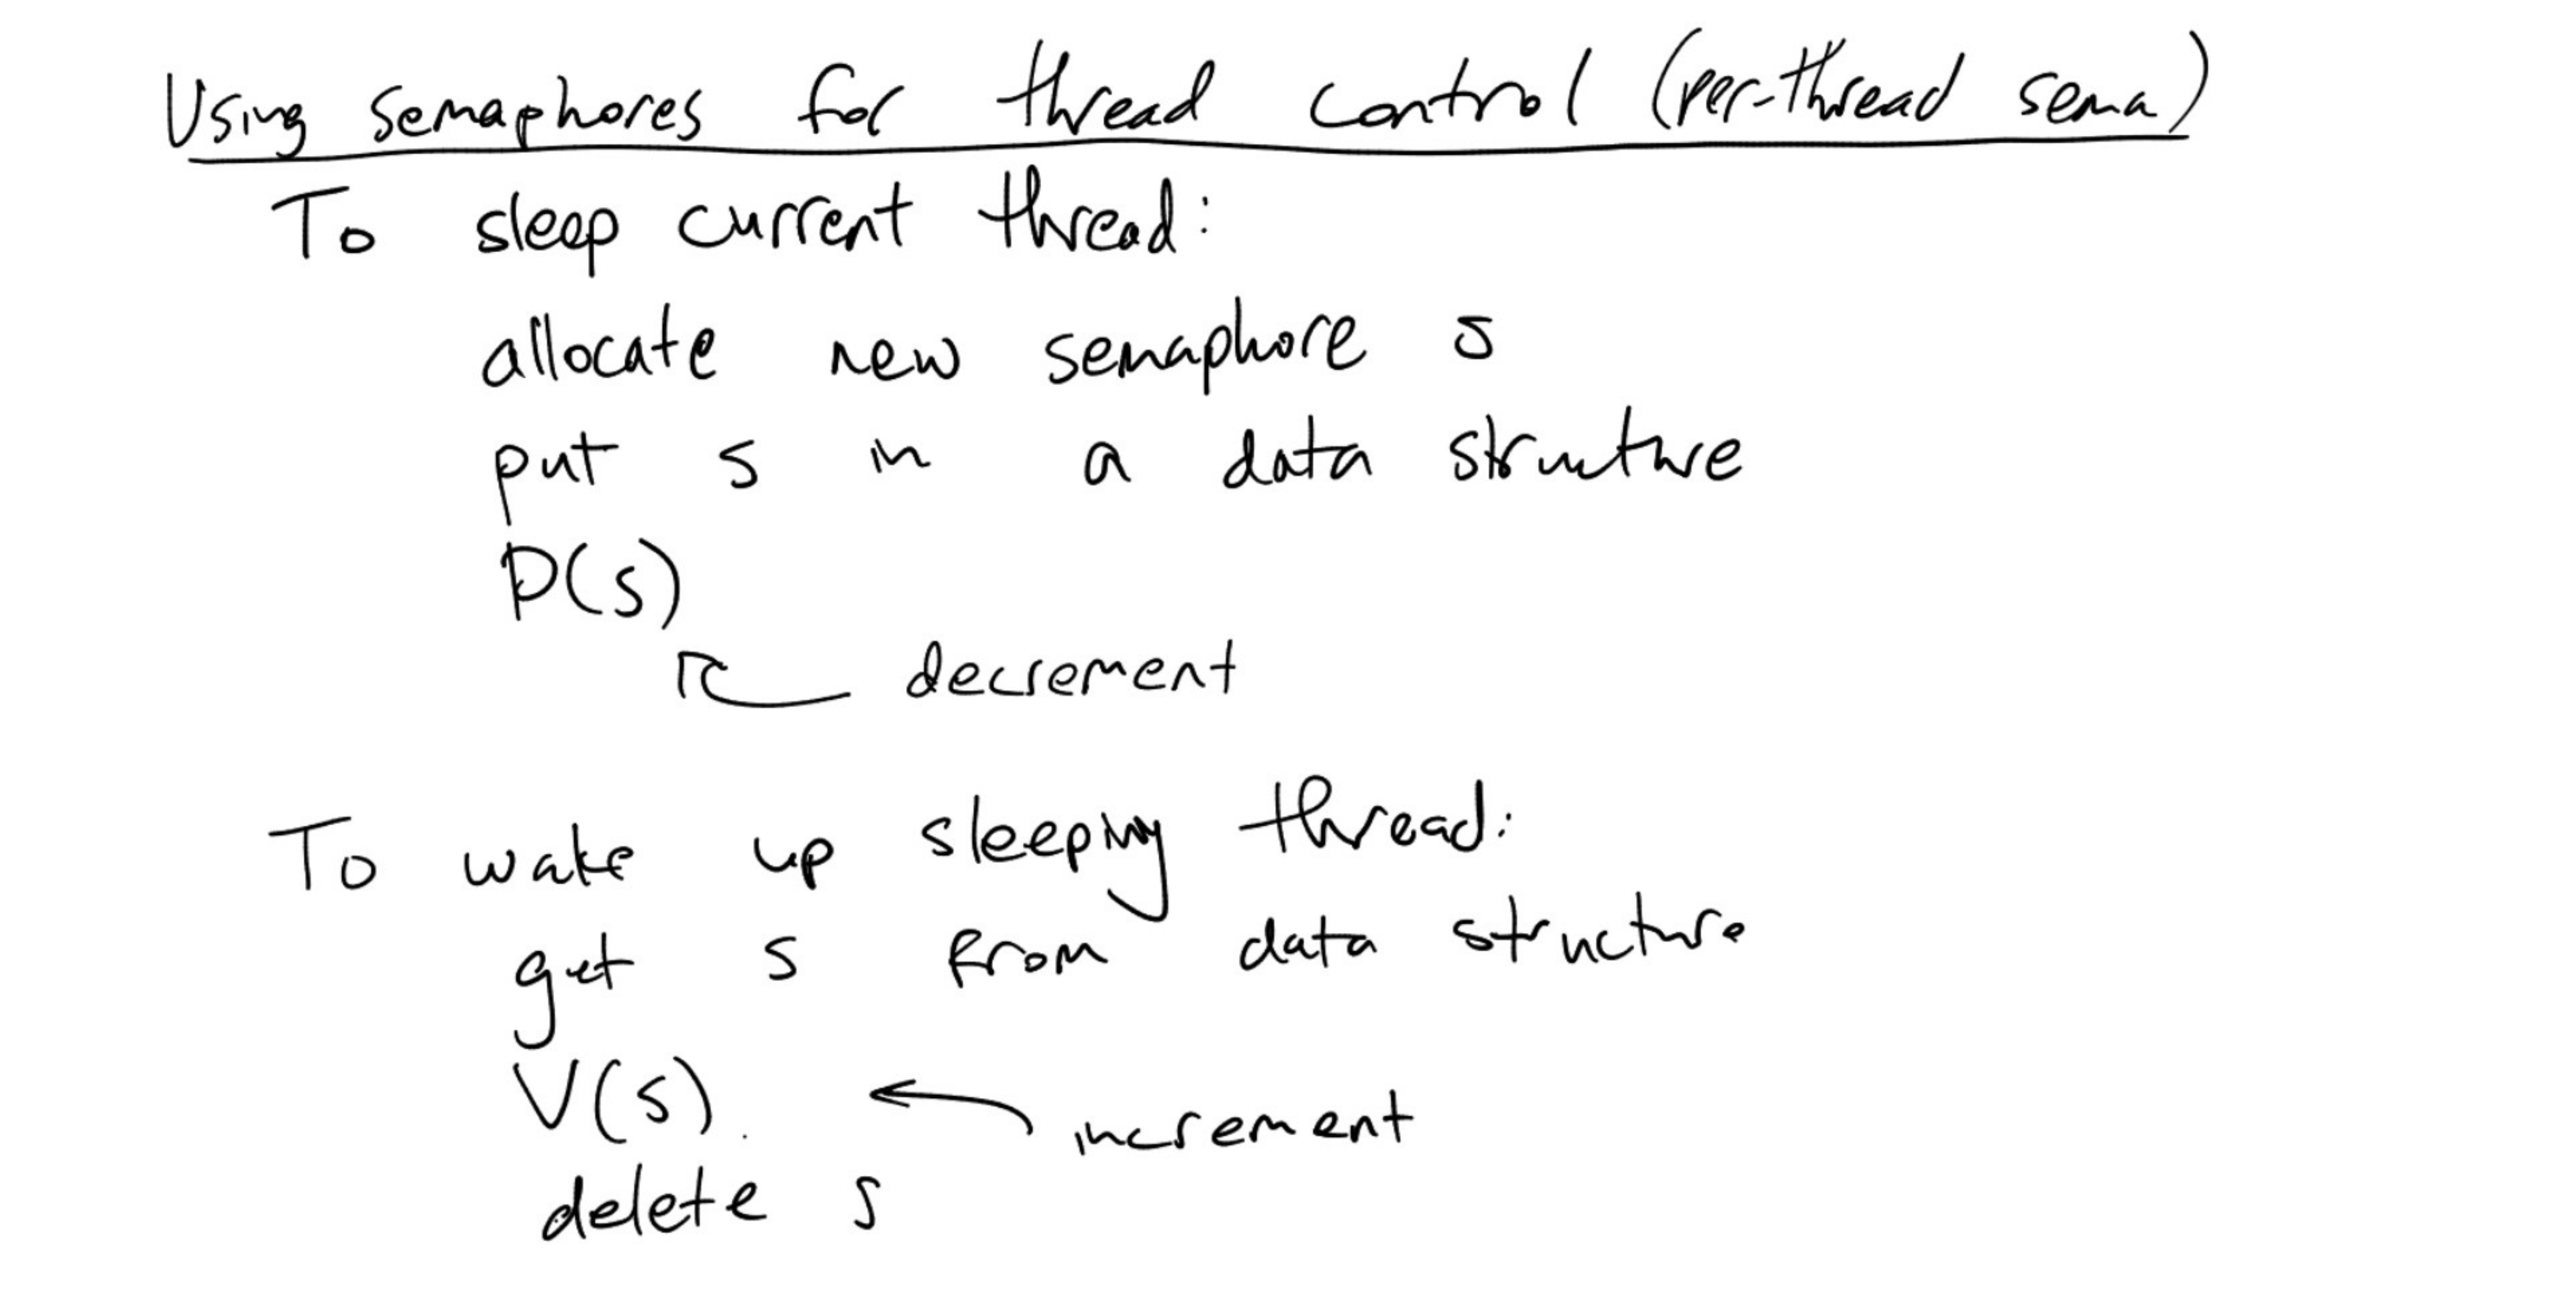 Using semaphores for thread control (per-thread sema)
To sleep current thread:
allocate new semaphore s
put s in a data structure
P(s)
decrement
To wake up sleeping thread:
get s from data structure
V(s)
increment
delete s